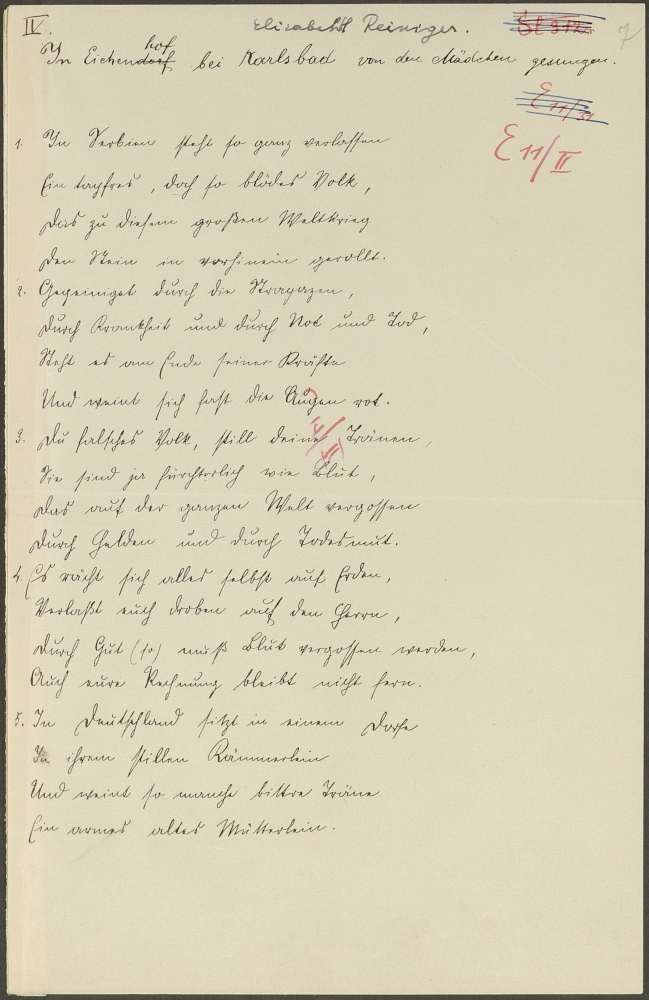 IV.
Elisabeth Reiniger.
7
In Eichenhof bei Karlsbad von den Mädchen gesungen.
E 11/31
E 11/II
1. In Serbien steht so ganz verlassen
Ein tapfres, doch so blödes Volk,
Das zu diesem großen Weltkrieg
Den Stein in vorhinein gerollt.
2. Gepeiniget durch die Strapazen,
Durch Krankheit und durch Not und Tod,
Steht es am Ende seiner Kräfte
Und weint sich fast die Augen rot.
3. Du falsches Volk, still deine Tränen,
Sie sind ja fürchterlich wie Blut,
Das auf der ganzen Welt vergossen
Durch Helden und durch Todesmut.
4. Es rächt sich alles selbst auf Erden,
Verlaßt euch droben auf den Herrn,
Durch Gut (so) muß Blut vergossen werden,
Auch eure Rechnung bleibt nicht fern.
5. In Deutschland sitzt in einem Dorfe
In ihrem stillen Kämmerlein
Und weint so manche bittre Träne
Ein armes altes Mütterlein.